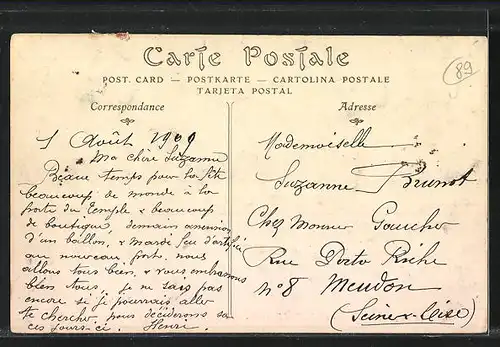 Carte Postale
89
POST. CARD — POSTKARTE — CARTOLINA POSTALE
TARJETA POSTAL
Correspondance
1 Août 1909
Ma chère Suzanne
Beau temps pour la fête
beaucoup de monde à la
porte du temple & beaucoup
de boutique, demain ascension
d'un ballon, & mardi feu d'artifice
au nouveau fort, nous
allons tous bien, & vous embrassons
bien tous, je ne sais pas
encore si je pourrais aller
te chercher, nous déciderons sa
ces jours-ci. Henri
Adresse
Mademoiselle
Suzanne Brunot
Chez Monsieur Gaucher
Rue Porto Riche
n° 8 Meudon
(Seine & Oise)